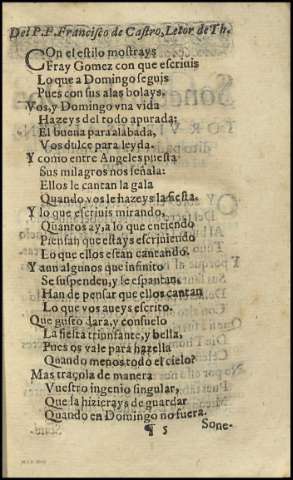 Del P. F. Francisco de Castro, Letor de Th.
COn el estilo mostrays
Fray Gomez con que escriuis
Lo que a Domingo seguis
Pues con sus alas bolays.
Vos, y Domingo vna vida
Hazeys del todo apurada:
El buena para alabada,
Vos dulce para leyda.
Y como entre Angeles puesta
Sus milagros nos señala:
Ellos le cantan la gala
Quando vos le hazeys la fiesta.
Y lo que escriuis mirando,
Quantos ay, a lo que entiendo
Piensan que estays escriuiendo
Lo que ellos estan cantando.
Y aun algunos que infinito
Se suspenden, y se espantan,
Han de pensar que ellos cantan
Lo que vos aueys escrito.
Que gusto dara, y consuelo
La fiesta triunfante, y bella,
Pues os vale para hazella
Quando menos todo el cielo?
Mas traçola de manera
Vuestro ingenio singular,
Que la hizierays de guardar
Quando en Domingo no fuera.
¶ 5
Sone-